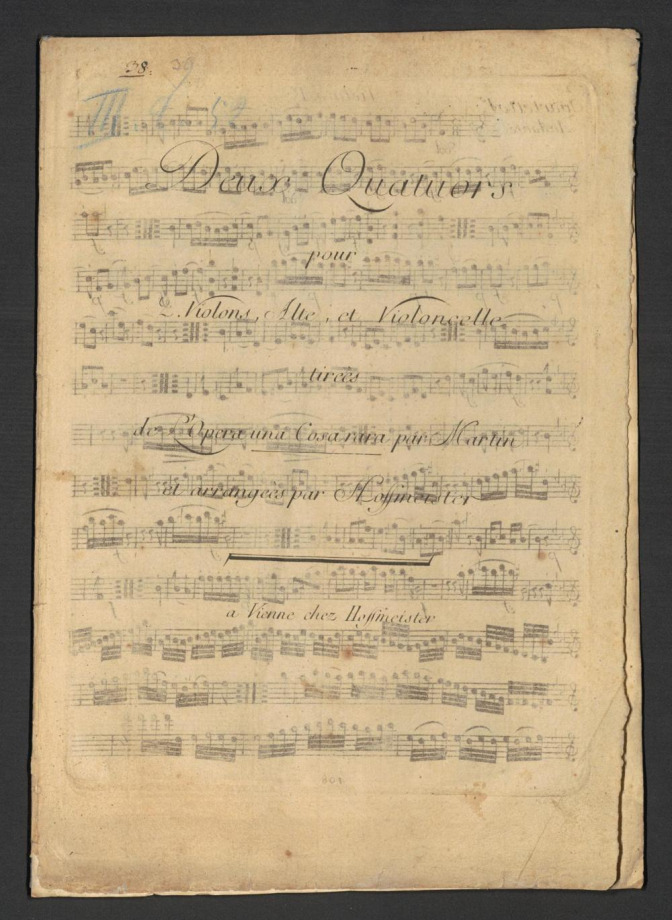 38. 39
III 52
Deux Quatuors
pour
2. Violons, Alte, et Violoncelle
tireés
de L'Opera una Cosa rara par Martin
et arrangeés par Hoffmeister
a Vienne chez Hoffmeister